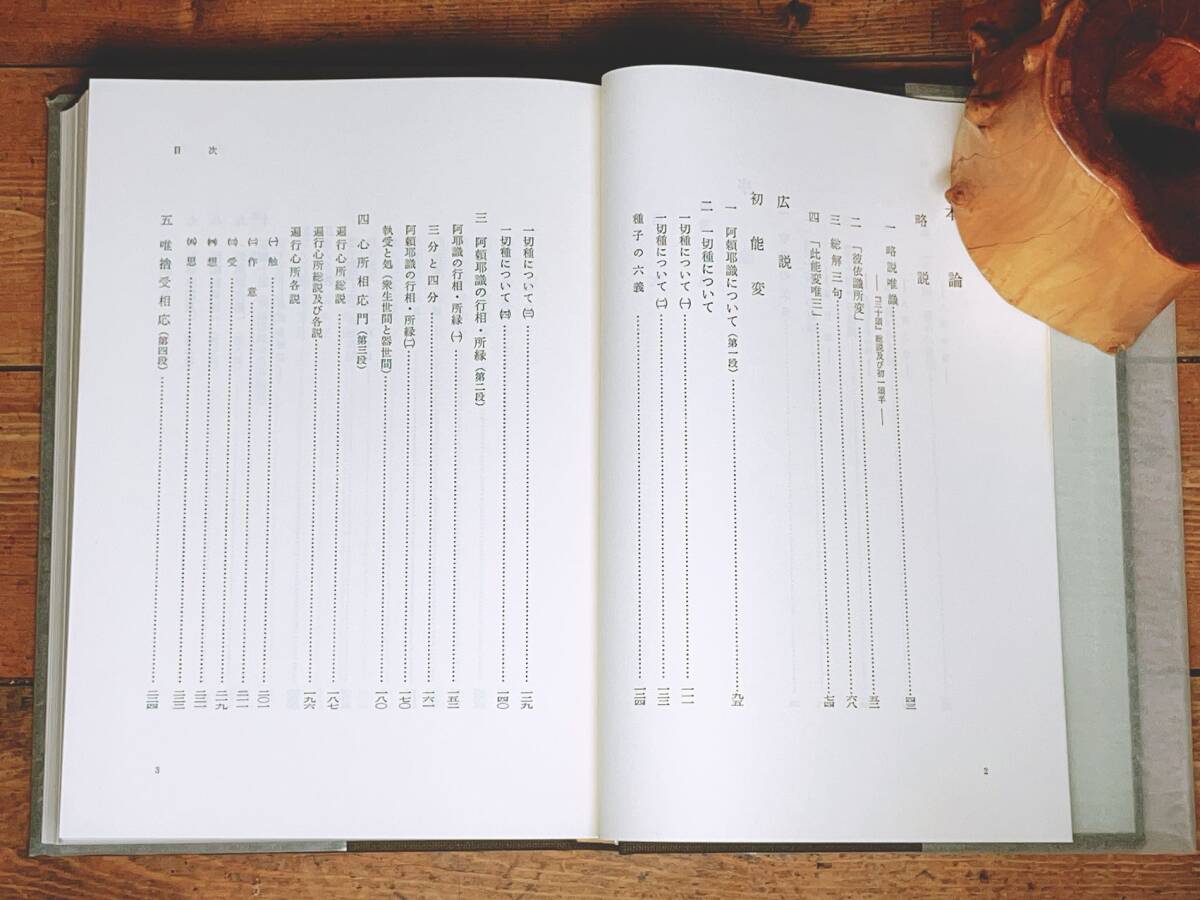 本論
略説
一 略説唯識……四三
―『三十頌』総説及び初一頌半―
二 「彼依識所変」……五二
三 総解三句……六八
四 「此能変唯三」……七四
広説
初能変
一 阿頼耶識について(第一段)……九五
二 一切種について
一切種について㈠……一一一
一切種について㈡……一二三
種子の六義……一二四
2
目次
一切種について㈢……一二九
一切種について㈣……一四〇
三 阿頼耶識の行相・所縁(第二段)
阿耶識の行相・所縁㈠……一五二
三分と四分……一六一
阿頼耶識の行相・所縁㈡……一七〇
執受と処(衆生世間と器世間)……一八〇
四 心所相応門(第三段)
遍行心所総説……一八七
遍行心所総説及び各説……一九六
遍行心所各説
㈠ 触……二〇一
㈡ 作意……二一一
㈢ 受……二一九
㈣ 想……二二一
㈤ 思……二二三
五 唯捨受相応(第四段)……二二四
3